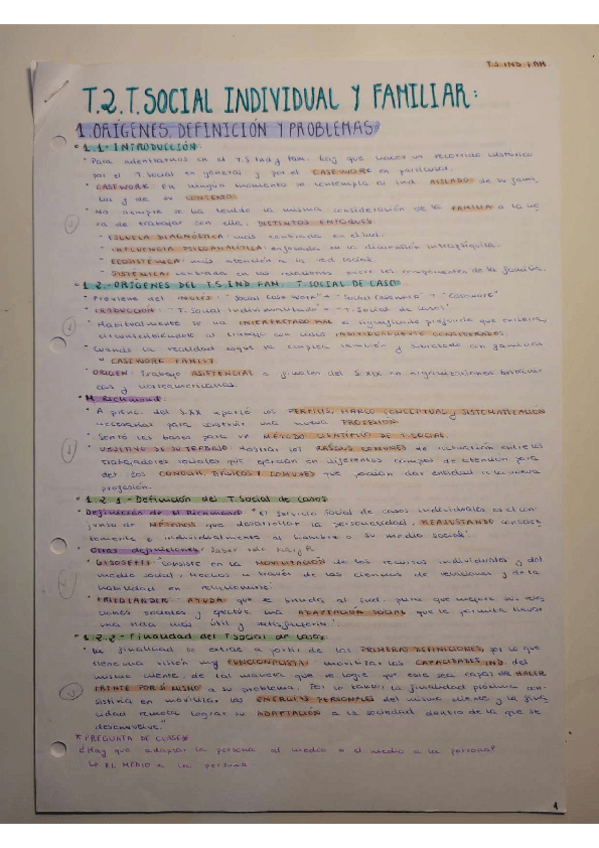 T.S. IND. FAM
T.2. T.SOCIAL INDIVIDUAL Y FAMILIAR:
1. ORÍGENES, DEFINICIÓN Y PROBLEMAS
1.1- INTRODUCCIÓN:
Para adentrarnos en el T.S Ind y Fam. hay que hacer un recorrido histórico
por el T. Social en general y por el CASEWORK en particular.
CASEWORK: En ningún momento se contempla al ind. AISLADO de su fami
lia y de su CONTEXTO.
No siempre se ha tenido la misma consideración de la FAMILIA a la ho
ra de trabajar con ella. DISTINTOS ENFOQUES
- ESCUELA DIAGNÓSTICA: más centrada en el ind.
- INFLUENCIA PSICOANALÍTICA: enfocada en la dimensión intrapsíquica.
- ECOSISTÉMICA: más atención a la red social.
- SISTÉMICA: centrada en las relaciones entre los componentes de la familia.
1.2.- ORÍGENES DEL T.S IND FAM. T.SOCIAL DE CASO
Proviene del INGLÉS: "Social Case Work" "Social Casework" "Casework"
TRADUCCIÓN: "T. Social Individualizado" "T. Social de Casos"
Habitualmente se ha INTERPRETADO MAL
al trabajo con casos INDIVIDUALMENTE CONSIDERADOS.
Cuando la realidad es que se emplea también y sobretodo con familias
CASEWORK FAMILY.
ORIGEN: Trabajo ASISTENCIAL a finales del S.XIX en organizaciones británi
cas y norteamericanas.
M. Richmond:
A princ. del S.XX aportó los PERFILES, MARCO CONCEPTUAL y SISTEMATIZACIÓN
necesarias para construir una nueva PROFESIÓN
Sentó las bases para un MÉTODO CIENTÍFICO DE T.SOCIAL.
OBJETIVO DE SU TRABAJO: Mostrar los RASGOS COMUNES de actuación entre los
trabajadores sociales que ejercían en diferentes campos de atención para
que puedan dar entidad a la nueva
profesión.
1.2.1- Definición del T.Social de casos
Definición de M Richmond: "El Servicio Social de casos individuales es el con
junto de MÉTODOS que desarrollan la personalidad, REAJUSTANDO conscien
temente e individualmente al hombre a su medio social".
Otras definiciones:
"Consiste en la MOVILIZACIÓN de los recursos individuales y del
medio social, hechos a través de las ciencias de relaciones y de la
habilidad en
FRIEDLANDER: AYUDA que se brinda al ind. para que mejore sus rela
ciones sociales y efectúe una ADAPTACIÓN SOCIAL que le permita llevar
una vida más útil y satisfactoria".
1.2.2- Finalidad del T.Social de casos
La finalidad se extrae a partir de las PRIMERAS DEFINICIONES, por lo que
tiene una visión muy FUNCIONALISTA: movilizar las CAPACIDADES IND. del
mismo cliente, de tal manera que se logre que éste sea capaz de HACER
FRENTE POR SÍ MISMO a su problema. Por lo tanto, la finalidad próxima con
sistiría en movilizar las ENERGÍAS PERSONALES del mismo cliente y la fina
lidad remota lograr su ADAPTACIÓN a la sociedad dentro de la que se
desenvuelve."
* PREGUNTA DE CLASE *
¿Hay que adaptar la persona al medio o el medio a la persona?
EL MEDIO a la persona
1